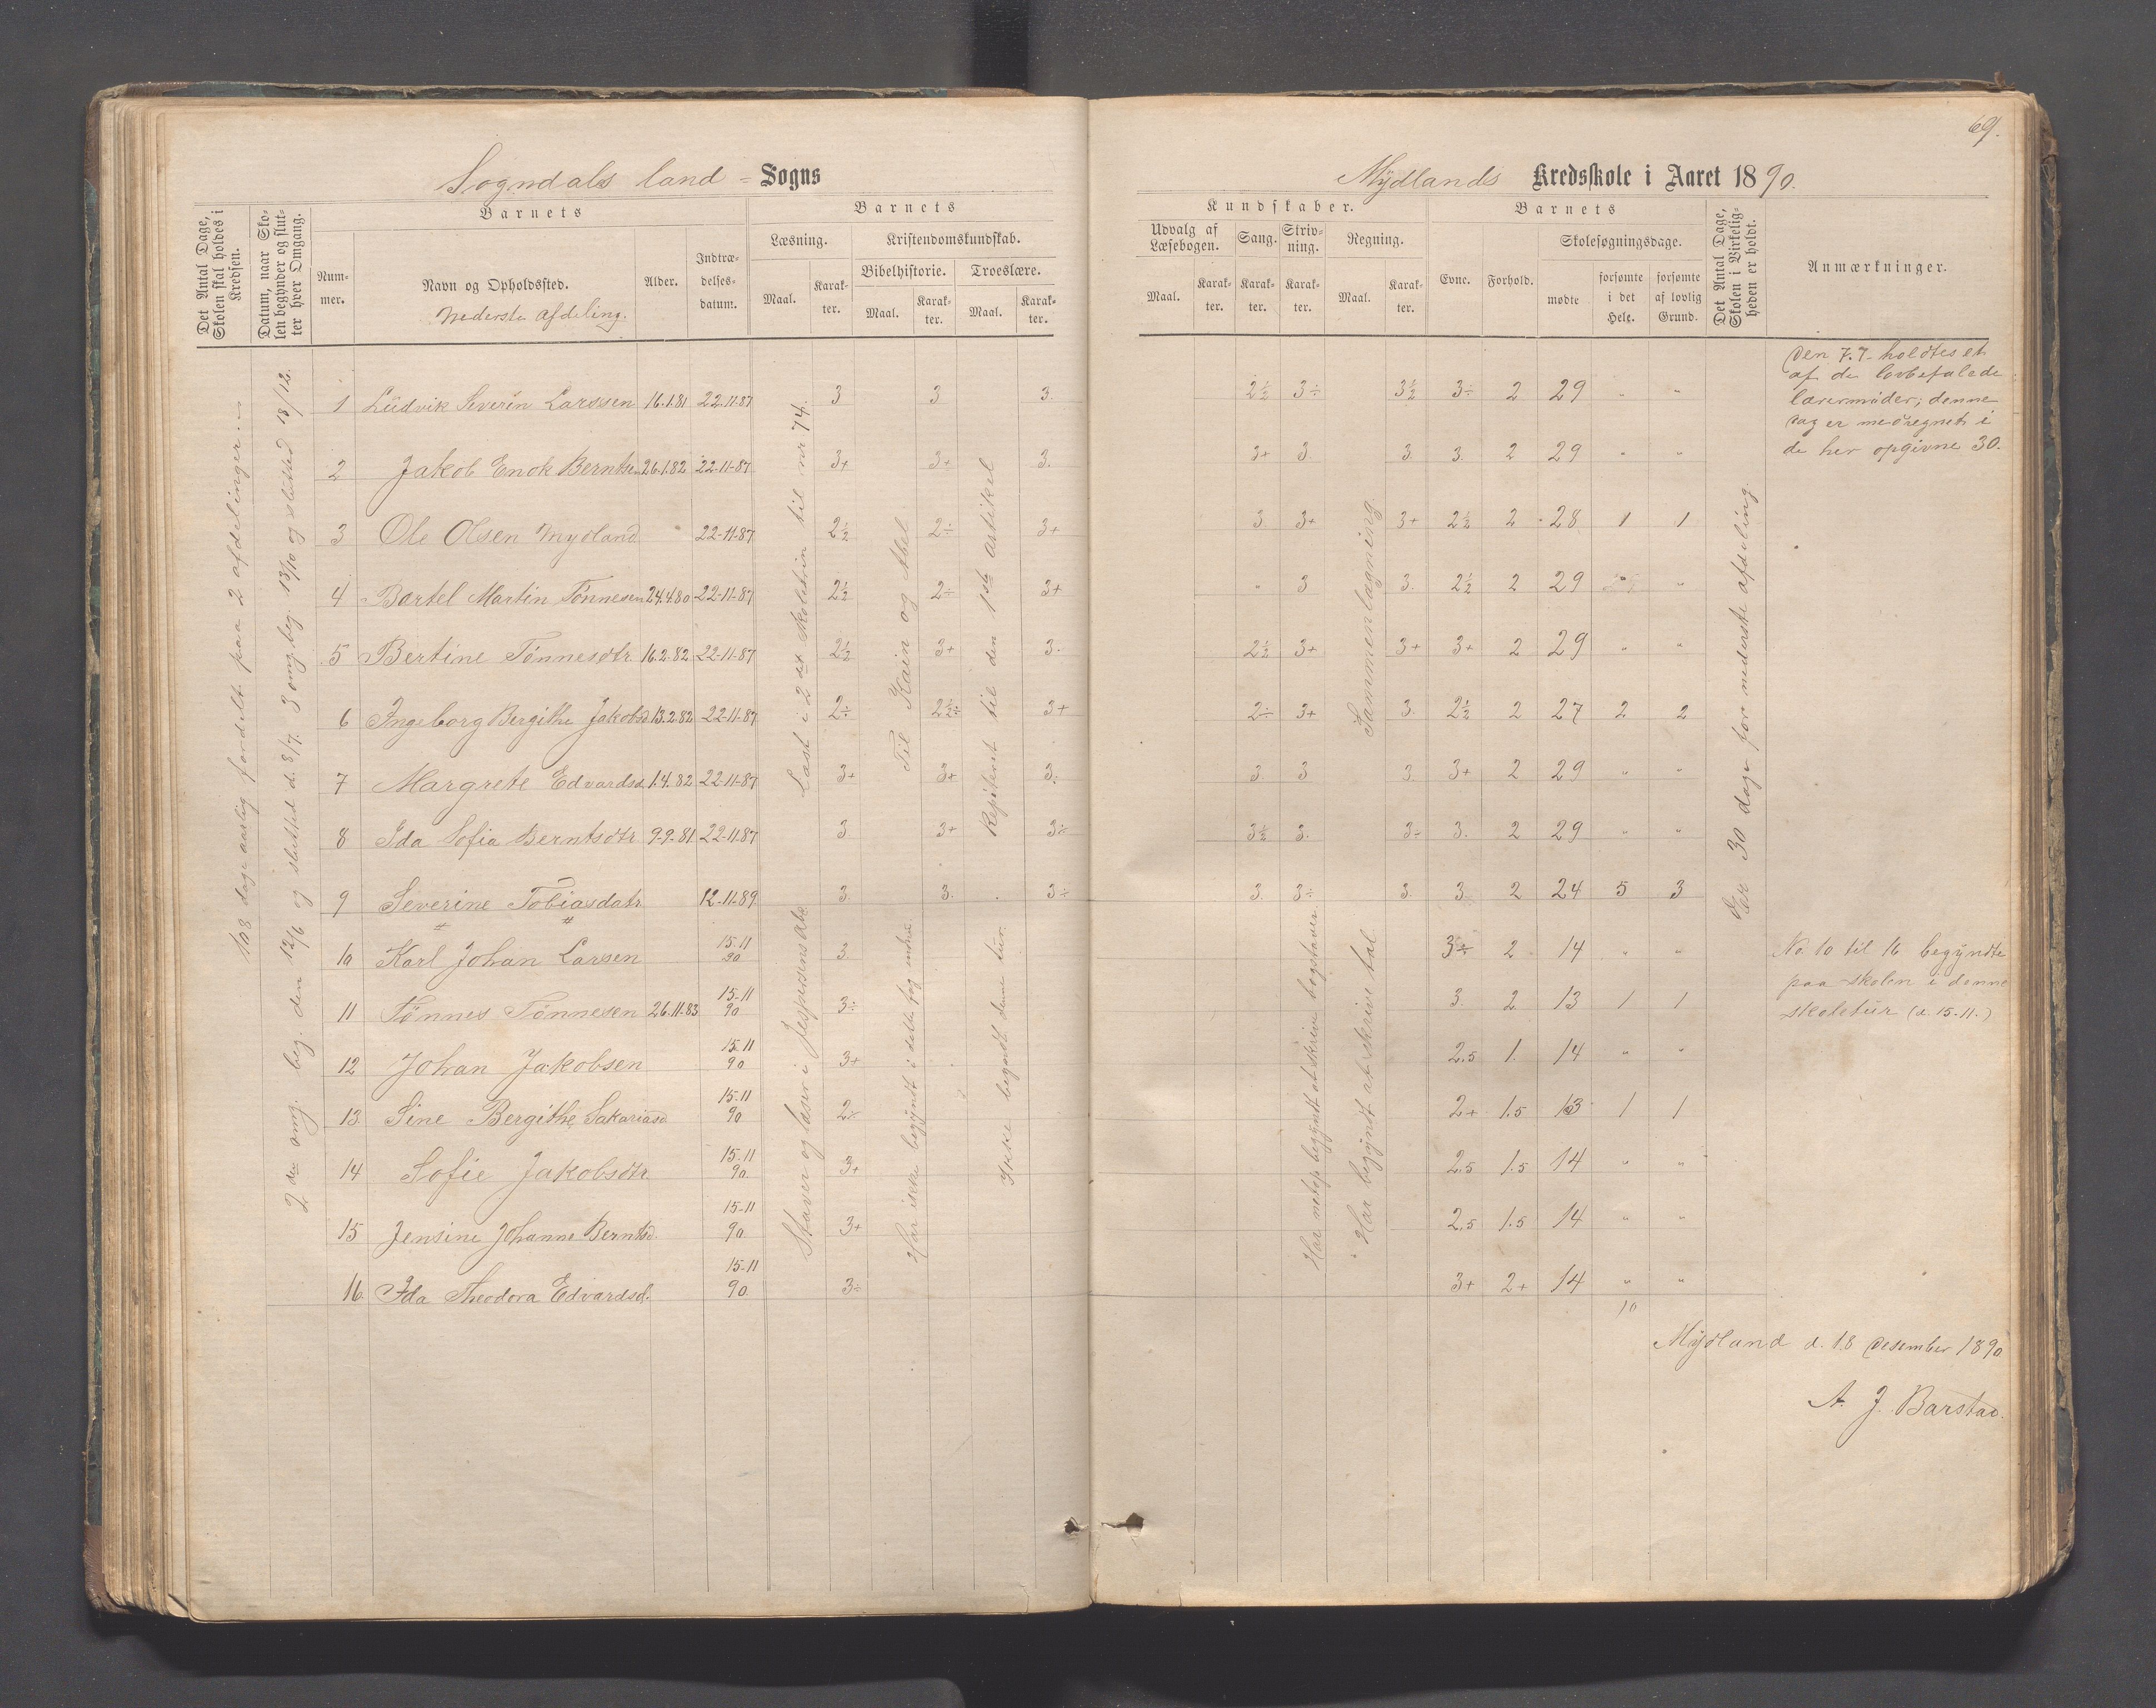 69.
Sogndals land - Sogns
Mydlands Kredsskole i Aaret 1890.
Det Antal Dage, Skolen skal holdes i Kredsen.
Datum, naar Skolen begynder og slutter hver Omgang.
Nummer.
Barnets
Navn og Opholdssted.
Nederste afdeling.
Alder.
Indtrædelsesdatum.
Barnets
Læsning.
Maal.
Karakter.
Kristendomskundskab.
Bibelhistorie.
Maal.
Karakter.
Troeslære.
Maal.
Karakter.
Kundskaber.
Udvalg af Læsebogen.
Maal.
Karakter.
Sang.
Karakter.
Skrivning.
Karakter.
Regning.
Maal.
Karakter.
Barnets
Evne.
Forhold.
Skolesøgningsdage.
mødte
forsømte i det Hele.
forsømte af lovlig Grund.
Det Antal Dage, Skolen i Virkeligheden er holdt.
Anmærkninger.
108 dage aarlig fordelt paa 2 afdelinger.
2den omg. beg. den 12/6 og slutted d. 8/7. 3 omg. beg. 13/10 og slutted 18/12.
Læst i 2det skoletrin til nr 74.
Til Kain og Abel
Repiterst til den 1ste artikel
Sammenlægning
er 30 dage for nederste afdeling.
1 Ludvik Severin Larssen 16.1.81 22.11.87 3 3 3. 2½ 3÷ 3½ 3÷ 2 29 " "
2 Jakob Enok Berntsen 26.1.82 22-11-87 3+ 3+ 3. 3+ 3. 3. 3. 2 29 " "
3 Ole Olsen Mydland 22-11-87 2½ 2÷ 3+ 3 3+ 3+ 2½ 2 28 1 1
4 Bartel Martin Tønnesen 24.4.80 22-11-87 2½ 2÷ 3+ " 3 3. 2½ 2 29 "
5 Bertine Tønnesdtr 16.2.82 22-11-87 2½ 3+ 3. 2½ 3+ 3+ 3+ 2 29 " "
6 Ingeborg Bergithe Jakobsd 13.2.82 22-11-87 2÷ 2½÷ 3+ 2÷ 3+ 3. 2½ 2 27 2 2
7 Margrete Edvardsd 1.4.82 22-11-87 3+ 3+ 3÷ 3. 3 3. 3+ 2 29 " "
8 Ida Sofia Berntsdtr 9-9-81 22-11-87 3. 3+ 3÷ 3½ 3. 3÷ 3. 2 29 " "
9 Severine Tobiasdatr 12-11-89 3. 3. 3÷ 3. 3÷ 3. 3. 2 24 5 3
10 Karl Johan Larsen 15.11 90 3 3÷ 2 14 " "
11 Tønnes Tønnesen 26.11.83 15-11 90 3÷ 3. 2 13 1 1
12 Johan Jakobsen 15.11 90 3+ 2.5 1. 14 " "
13. Sine Bergithe Sakariasd 15.11 90 2÷ 2+ 1.5 13 1 1
14 Sofie Jakobsdtr 15.11 90. 3+ 2.5 1.5 14 " "
15 Jensine Johanne Berntsd. 15-11 90. 3+ 2.5 1.5 14 " "
16. Ida Theodora Edvardsd. 15-11 90. 3÷ 3+ 2+ 14 " "
10
Staver og læser i Jespersens Abc
Har ikke begyndt i dette fag endnu
Ikke begyndt denne tur.
Har netop begyndt at skrive bogstaver.
Har begyndt at skrive tal
Den 7.7. holdtes et
af de lovbefalede
lærermøder; denne
dag er medregnet i
de her opgivne 30.
No. 10 til 16 begyndte
paa skolen i denne
skoletur (d. 15-11.)
Mydland d. 18 Desember 1890.
A. J. Barstad.